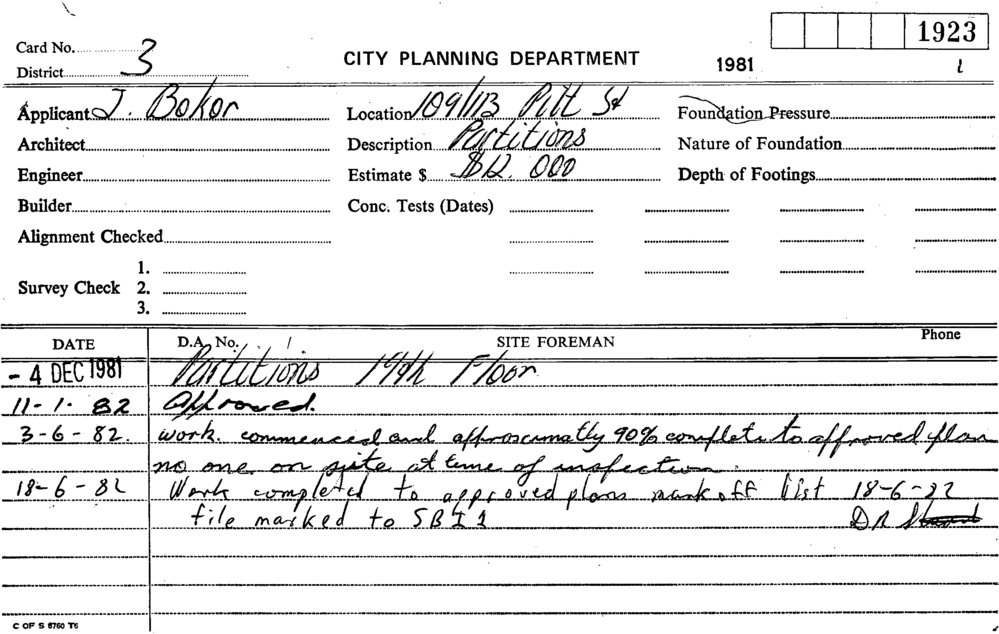 1923
Card No. 3
District
CITY PLANNING DEPARTMENT 1981
Applicant J. Bokor Location 109/113 Pitt St Foundation Pressure
Architect Description Partitions Nature of Foundation
Engineer Estimate $ $12.000 Depth of Footings
Builder Conc. Tests (Dates)
Alignment Checked
1.
Survey Check 2.
3.
DATE D.A. No. SITE FOREMAN Phone
- 4 DEC 1981 Partitions 19th Floor
11-1-82 Approved.
3-6-82. work commenced and approximatly 90% complete to approved plan
no one on site at time of inspection.
18-6-82 Work completed to approved plans mark off list 18-6-82
file marked to SBI 1
D R
C OF S 6760 T6